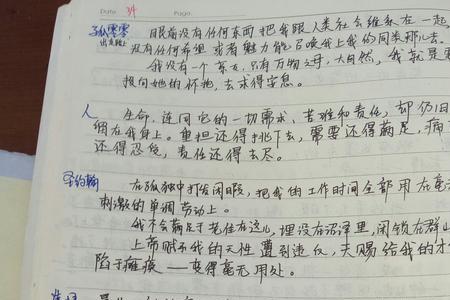 Date 34 Page.
孤零零 眼前没有任何东西把我跟人类社会维系在一起,
出走路上 没有任何希望或者魅力能召唤我上我的同类那儿去。
我没有一个亲友,只有万物之母,大自然,我就是要
投向她的怀抱,去求得安息。
人 生命,连同它的一切需求,苦难和责任,却仍旧
在我身上。重担还得挑下去,需要还得满足,痛
还得忍受,责任还得去尽。
圣约翰 在孤独中打发闲暇,把我的工作时间全部用在毫无
刺激的单调劳动上。
我不会满足于老住在这儿,埋没在沼泽里,闭锁在群山
上帝赋予我的天性遭到违反,天赐给我的才
陷于瘫痪——变得毫无用处。